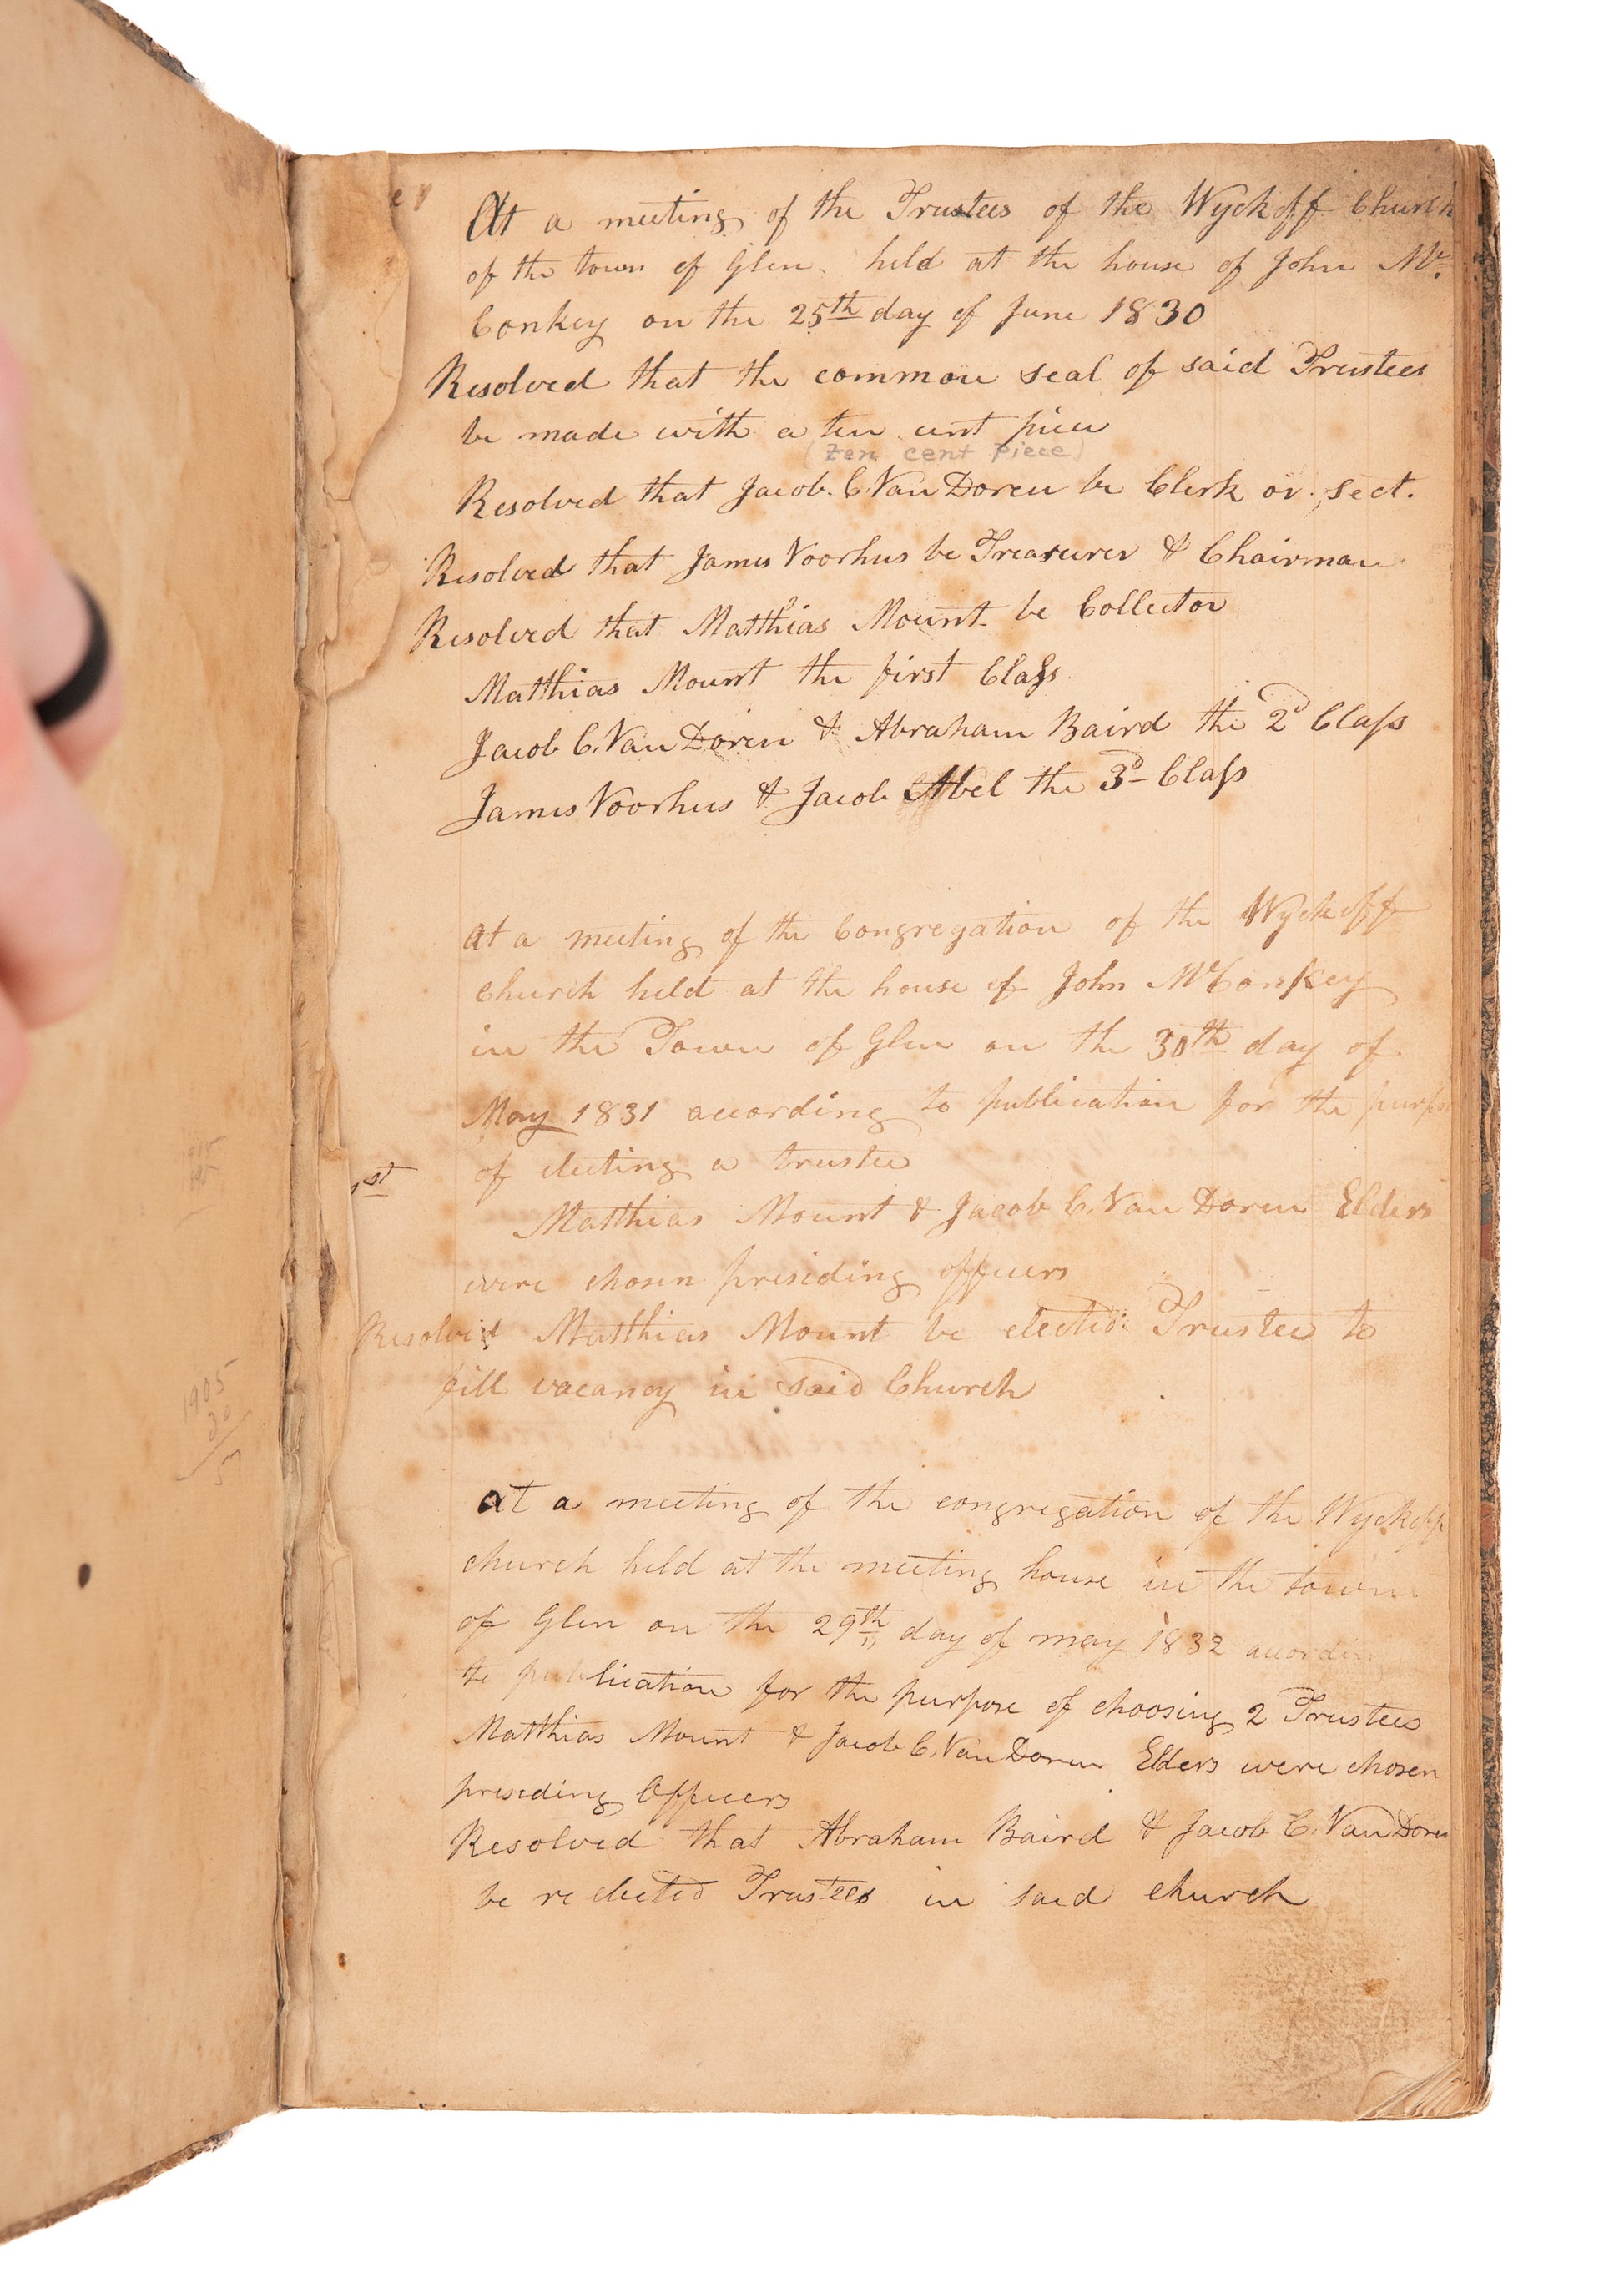 At a meeting of the Trustees of the Wyckoff Church
of the town of Glen held at the house of John Mc.
Conkey on the 25th day of June 1830
Resolved that the common seal of said Trustees
be made with a ten cent piece
(ten cent piece)
Resolved that Jacob. C. Van Doren be Clerk or sect.
Resolved that James Voorhes be Treasurer & Chairman
Resolved that Matthias Mount be Collector
Matthias Mount the first Class
Jacob C. Van Doren & Abraham Baird the 2d Class
James Voorhes & Jacob Abel the 3d Class
at a meeting of the Congregation of the Wyckoff
Church held at the house of John McConkey
in the Town of Glen on the 30th day of
May 1831 according to publication for the purpo
1st of electing a trustee
Matthias Mount & Jacob C. Van Doren Elders
were chosen presiding officers
Resolved Matthias Mount be elected Trustee to
fill vacancy in said Church
at a meeting of the congregation of the Wyckoff
church held at the meeting house in the town
of Glen on the 29th day of may 1832 acordin
to publication for the purpose of choosing 2 Trustees
Matthias Mount & Jacob C. Van Doren Elders were chosen
presiding Officers
Resolved that Abraham Baird & Jacob C. Van Doren
be re elected Trustees in said church
1905
30
57